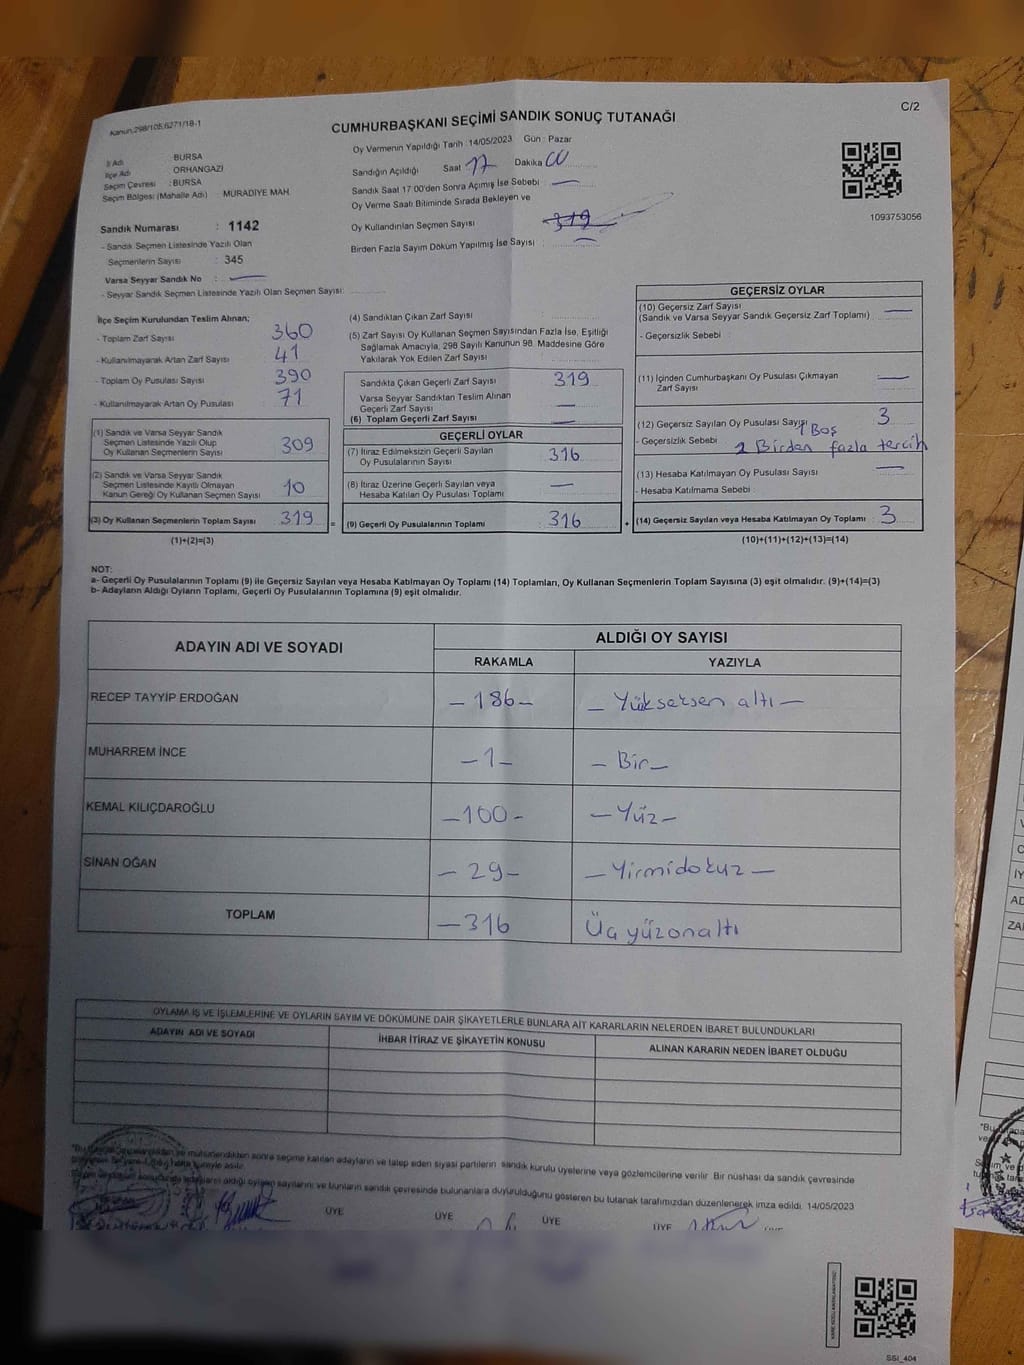 C/2
Kanun.298/105,6271/18-1
CUMHURBAŞKANI SEÇİMİ SANDIK SONUÇ TUTANAĞI
İl Adı BURSA
İlçe Adı ORHANGAZİ
Seçim Çevresi : BURSA
Seçim Bölgesi (Mahalle Adı) : MURADİYE MAH.
Sandık Numarası : 1142
- Sandık Seçmen Listesinde Yazılı Olan
Seçmenlerin Sayısı : 345
Varsa Seyyar Sandık No : —
- Seyyar Sandık Seçmen Listesinde Yazılı Olan Seçmen Sayısı:
Oy Vermenin Yapıldığı Tarih : 14/05/2023 Gün : Pazar
Sandığın Açıldığı Saat 17 Dakika 00
Sandık Saat 17:00'den Sonra Açımış İse Sebebi : —
Oy Verme Saati Bitiminde Sırada Bekleyen ve
Oy Kullandırılan Seçmen Sayısı : 319
Birden Fazla Sayım Döküm Yapılmış İse Sayısı : —
1093753056
İlçe Seçim Kurulundan Teslim Alınan;
- Toplam Zarf Sayısı : 360
- Kullanılmayarak Artan Zarf Sayısı : 41
- Toplam Oy Pusulası Sayısı : 390
- Kullanılmayarak Artan Oy Pusulası : 71
(1) Sandık ve Varsa Seyyar Sandık
Seçmen Listesinde Yazılı Olup
Oy Kullanan Seçmenlerin Sayısı : 309
(2) Sandık ve Varsa Seyyar Sandık
Seçmen Listesinde Kayıtlı Olmayan
Kanun Gereği Oy Kullanan Seçmen Sayısı : 10
(3) Oy Kullanan Seçmenlerin Toplam Sayısı : 319 =
(1)+(2)=(3)
(4) Sandıktan Çıkan Zarf Sayısı :
(5) Zarf Sayısı Oy Kullanan Seçmen Sayısından Fazla İse, Eşitliği
Sağlamak Amacıyla, 298 Sayılı Kanunun 98. Maddesine Göre
Yakılarak Yok Edilen Zarf Sayısı :
Sandıkta Çıkan Geçerli Zarf Sayısı : 319
Varsa Seyyar Sandıktan Teslim Alınan
Geçerli Zarf Sayısı : —
(6) Toplam Geçerli Zarf Sayısı : —
GEÇERLİ OYLAR
(7) İtiraz Edilmeksizin Geçerli Sayılan
Oy Pusulalarının Sayısı : 316
(8) İtiraz Üzerine Geçerli Sayılan veya
Hesaba Katılan Oy Pusulası Toplamı : —
(9) Geçerli Oy Pusulalarının Toplamı : 316 +
GEÇERSİZ OYLAR
(10) Geçersiz Zarf Sayısı : —
(Sandık ve Varsa Seyyar Sandık Geçersiz Zarf Toplamı)
- Geçersizlik Sebebi :
(11) İçinden Cumhurbaşkanı Oy Pusulası Çıkmayan : —
Zarf Sayısı
(12) Geçersiz Sayılan Oy Pusulası Sayısı 3
1 Boş
- Geçersizlik Sebebi : 2 Birden fazla tercih
(13) Hesaba Katılmayan Oy Pusulası Sayısı : —
- Hesaba Katılmama Sebebi :
(14) Geçersiz Sayılan veya Hesaba Katılmayan Oy Toplamı : 3
(10)+(11)+(12)+(13)=(14)
NOT:
a- Geçerli Oy Pusulalarının Toplamı (9) ile Geçersiz Sayılan veya Hesaba Katılmayan Oy Toplamı (14) Toplamları, Oy Kullanan Seçmenlerin Toplam Sayısına (3) eşit olmalıdır. (9)+(14)=(3)
b- Adayların Aldığı Oyların Toplamı, Geçerli Oy Pusulalarının Toplamına (9) eşit olmalıdır.
ADAYIN ADI VE SOYADI ALDIĞI OY SAYISI
RAKAMLA YAZIYLA
RECEP TAYYİP ERDOĞAN — 186 — — Yükseksen altı —
MUHARREM İNCE — 1 — — Bir —
KEMAL KILIÇDAROĞLU — 100 - — Yüz —
SİNAN OĞAN — 29 — — Yirmidokuz —
TOPLAM — 316 Üçyüzonaltı
OYLAMA İŞ VE İŞLEMLERİNE VE OYLARIN SAYIM VE DÖKÜMÜNE DAİR ŞİKAYETLERLE BUNLARA AİT KARARLARIN NELERDEN İBARET BULUNDUKLARI
ADAYIN ADI VE SOYADI İHBAR İTİRAZ VE ŞİKAYETİN KONUSU ALINAN KARARIN NEDEN İBARET OLDUĞU
sonra seçime katılan adayların ve talep eden siyasi partilerin sandık kurulu üyelerine veya gözlemcilerine verilir. Bir nüshası da sandık çevresinde
aldığı oyların sayılarını ve bunların sandık çevresinde bulunanlara duyurulduğunu gösteren bu tutanak tarafımızdan düzenlenerek imza edildi. 14/05/2023
ÜYE ÜYE ÜYE ÜYE
SSI_404